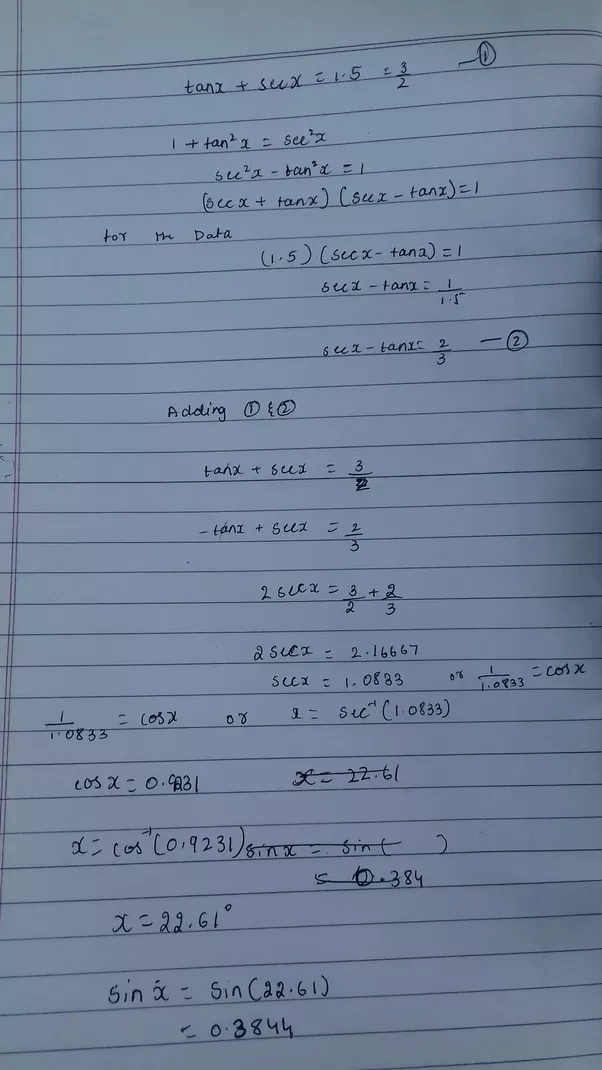 tanx + secx = 1.5 = 3/2 — ①
1 + tan²x = sec²x
sec²x - tan²x = 1
(secx + tanx) (secx - tanx) = 1
for the Data
(1.5) (secx - tanx) = 1
secx - tanx = 1/1.5
secx - tanx = 2/3 — ②
Adding ① & ②
tanx + secx = 3/2
-tanx + secx = 2/3
2 secx = 3/2 + 2/3
2 secx = 2.16667
secx = 1.0833 or 1/1.0833 = cosx
1/1.0833 = cosx or x = sec⁻¹(1.0833)
cosx = 0.9231 x = 22.61
x = cos⁻¹(0.9231) sinx = sin( )
= 0.384
x = 22.61°
sin x = sin(22.61)
= 0.3844